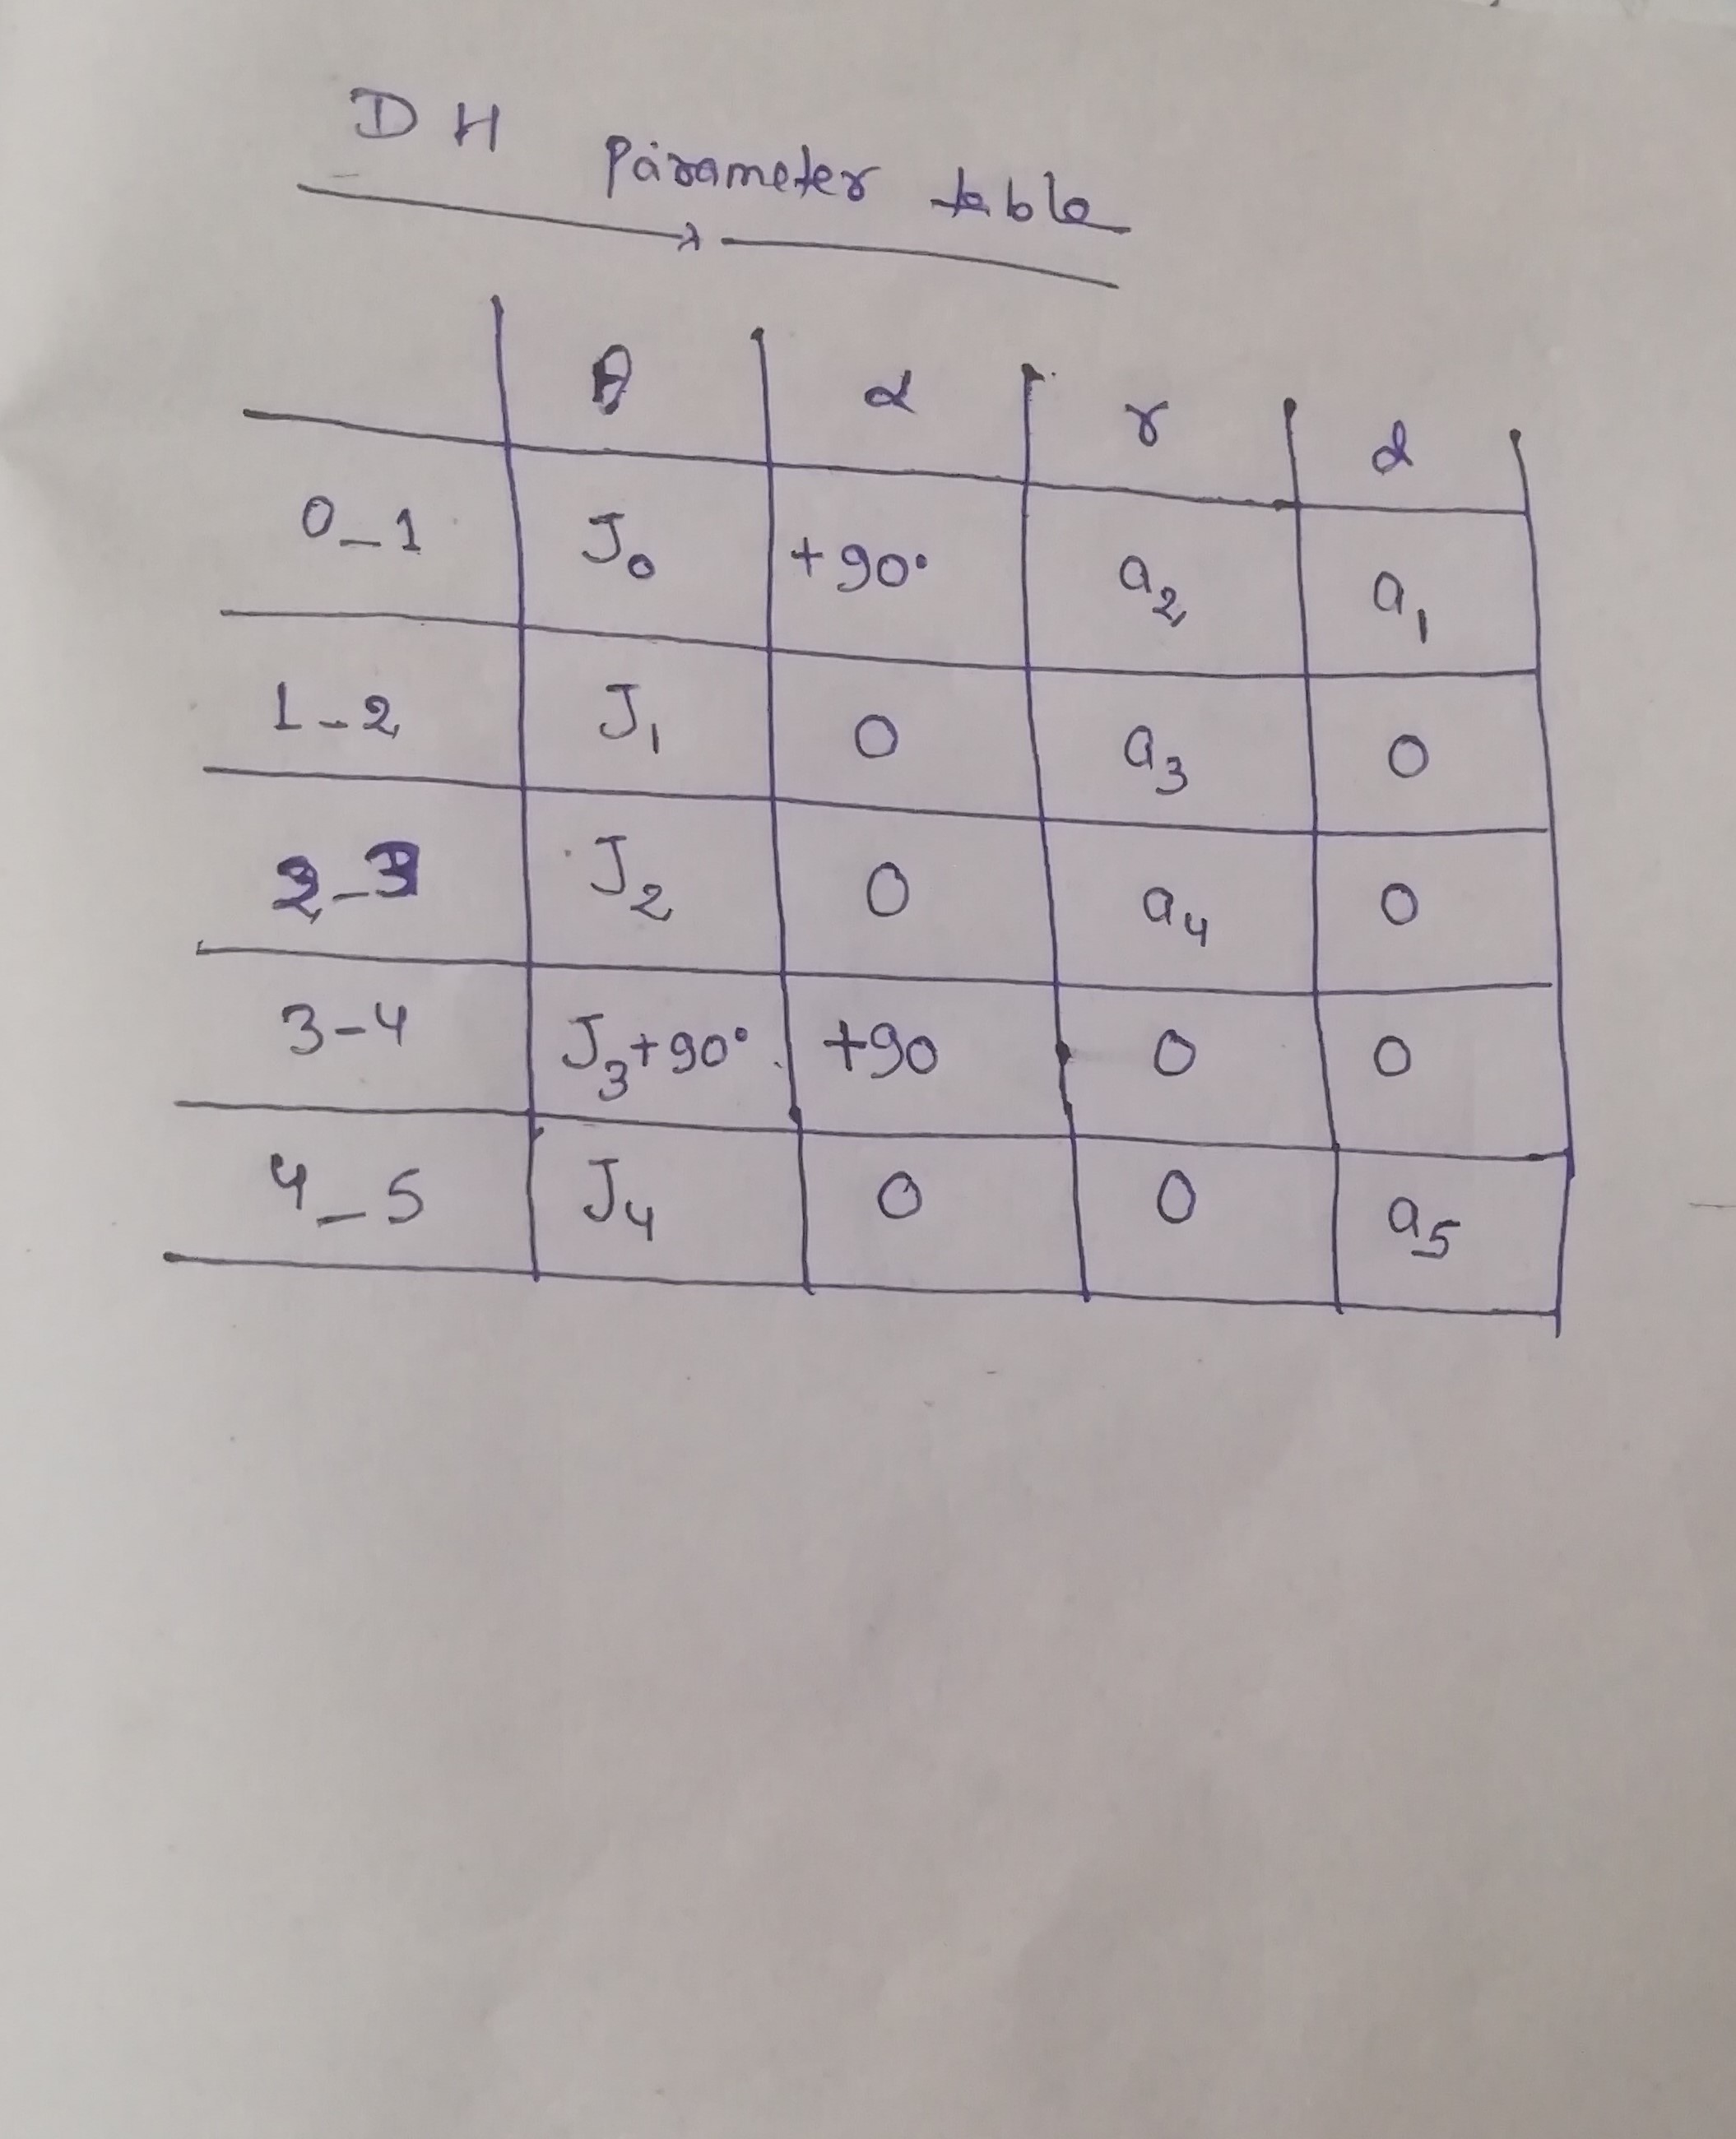 DH Parameter table
θ α r d
0_1 J₀ +90° a₂ a₁
1-2 J₁ 0 a₃ 0
2_3 J₂ 0 a₄ 0
3-4 J₃+90° +90 0 0
4_5 J₄ 0 0 a₅